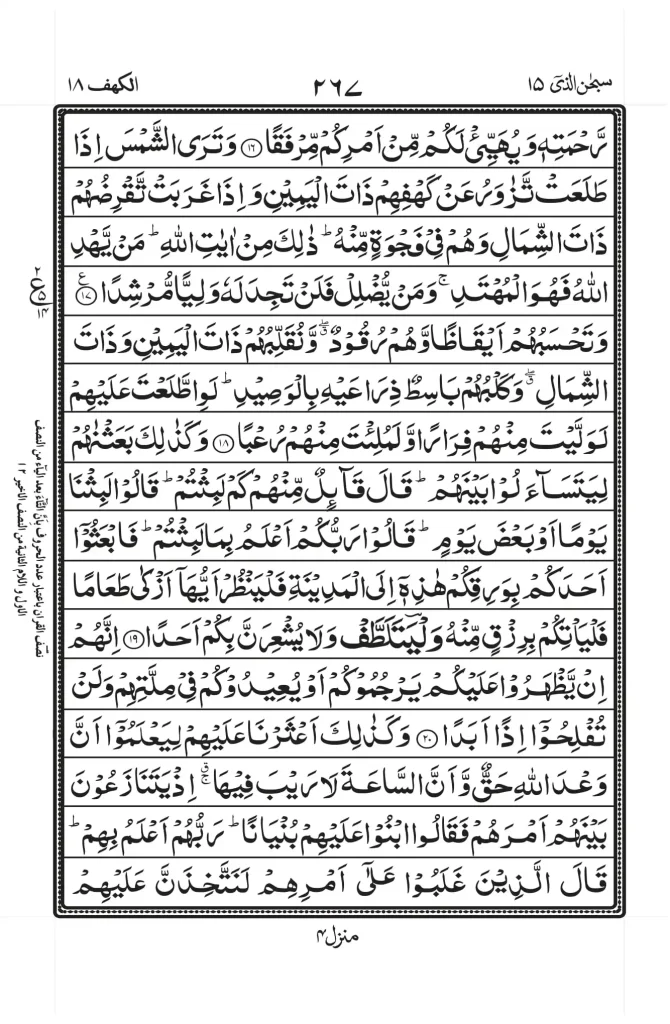 سبحٰن الذیٓ ۱۵
۲۶۷
الکهف ۱۸
رَّحْمَتِهٖ وَیُهَیِّئْ لَكُمْ مِّنْ اَمْرِكُمْ مِّرْفَقًا ۝۱۶ وَتَرَی الشَّمْسَ اِذَا
طَلَعَتْ تَّزٰوَرُ عَنْ كَهْفِهِمْ ذَاتَ الْیَمِیْنِ وَاِذَا غَرَبَتْ تَّقْرِضُهُمْ
ذَاتَ الشِّمَالِ وَهُمْ فِیْ فَجْوَةٍ مِّنْهُ ؕ ذٰلِكَ مِنْ اٰیٰتِ اللهِ ؕ مَنْ یَّهْدِ
اللهُ فَهُوَ الْمُهْتَدِ ۚ وَمَنْ یُّضْلِلْ فَلَنْ تَجِدَ لَهٗ وَلِیًّا مُّرْشِدًا ۝۱۷
وَتَحْسَبُهُمْ اَیْقَاظًا وَّهُمْ رُقُوْدٌ ۖۗ وَّنُقَلِّبُهُمْ ذَاتَ الْیَمِیْنِ وَذَاتَ
الشِّمَالِ ۖۗ وَكَلْبُهُمْ بَاسِطٌ ذِرَاعَیْهِ بِالْوَصِیْدِ ؕ لَوِ اطَّلَعْتَ عَلَیْهِمْ
لَوَلَّیْتَ مِنْهُمْ فِرَارًا وَّلَمُلِئْتَ مِنْهُمْ رُعْبًا ۝۱۸ وَكَذٰلِكَ بَعَثْنٰهُمْ
لِیَتَسَآءَلُوْا بَیْنَهُمْ ؕ قَالَ قَآئِلٌ مِّنْهُمْ كَمْ لَبِثْتُمْ ؕ قَالُوْا لَبِثْنَا
یَوْمًا اَوْ بَعْضَ یَوْمٍ ؕ قَالُوْا رَبُّكُمْ اَعْلَمُ بِمَا لَبِثْتُمْ ؕ فَابْعَثُوْۤا
اَحَدَكُمْ بِوَرِقِكُمْ هٰذِهٖۤ اِلَی الْمَدِیْنَةِ فَلْیَنْظُرْ اَیُّهَاۤ اَزْكٰی طَعَامًا
فَلْیَاْتِكُمْ بِرِزْقٍ مِّنْهُ وَلْیَتَلَطَّفْ وَلَا یُشْعِرَنَّ بِكُمْ اَحَدًا ۝۱۹ اِنَّهُمْ
اِنْ یَّظْهَرُوْا عَلَیْكُمْ یَرْجُمُوْكُمْ اَوْ یُعِیْدُوْكُمْ فِیْ مِلَّتِهِمْ وَلَنْ
تُفْلِحُوْۤا اِذًا اَبَدًا ۝۲۰ وَكَذٰلِكَ اَعْثَرْنَا عَلَیْهِمْ لِیَعْلَمُوْۤا اَنَّ
وَعْدَ اللهِ حَقٌّ وَّاَنَّ السَّاعَةَ لَا رَیْبَ فِیْهَا ۚۗ اِذْ یَتَنَازَعُوْنَ
بَیْنَهُمْ اَمْرَهُمْ فَقَالُوا ابْنُوْا عَلَیْهِمْ بُنْیَانًا ؕ رَبُّهُمْ اَعْلَمُ بِهِمْ ؕ
قَالَ الَّذِیْنَ غَلَبُوْا عَلٰۤی اَمْرِهِمْ لَنَتَّخِذَنَّ عَلَیْهِمْ
ع
نصف القران باعتبار عدد الحروف بانّ التّآء بعد الیآء من النصف
الاول و اللام الثانیة من النصف الاخیر ۱۲
منزل ۴